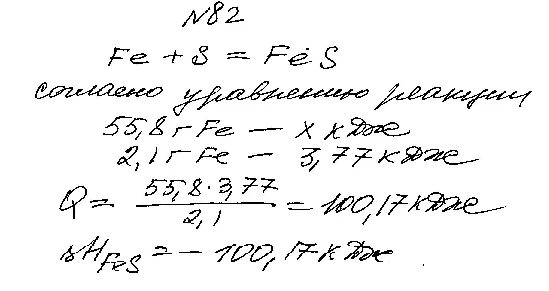 N82
Fe + S = FeS
согласно уравнению реакции
55,8 г Fe — x кДж
2,1 г Fe — 3,77 кДж
Q = 55,8·3,77 / 2,1 = 100,17 кДж
ΔH FeS = – 100,17 кДж